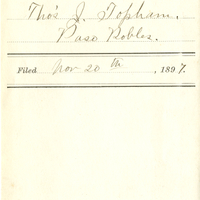 Tho's J. Topham.
Paso Robles.
Filed Nov 20th, 1897.